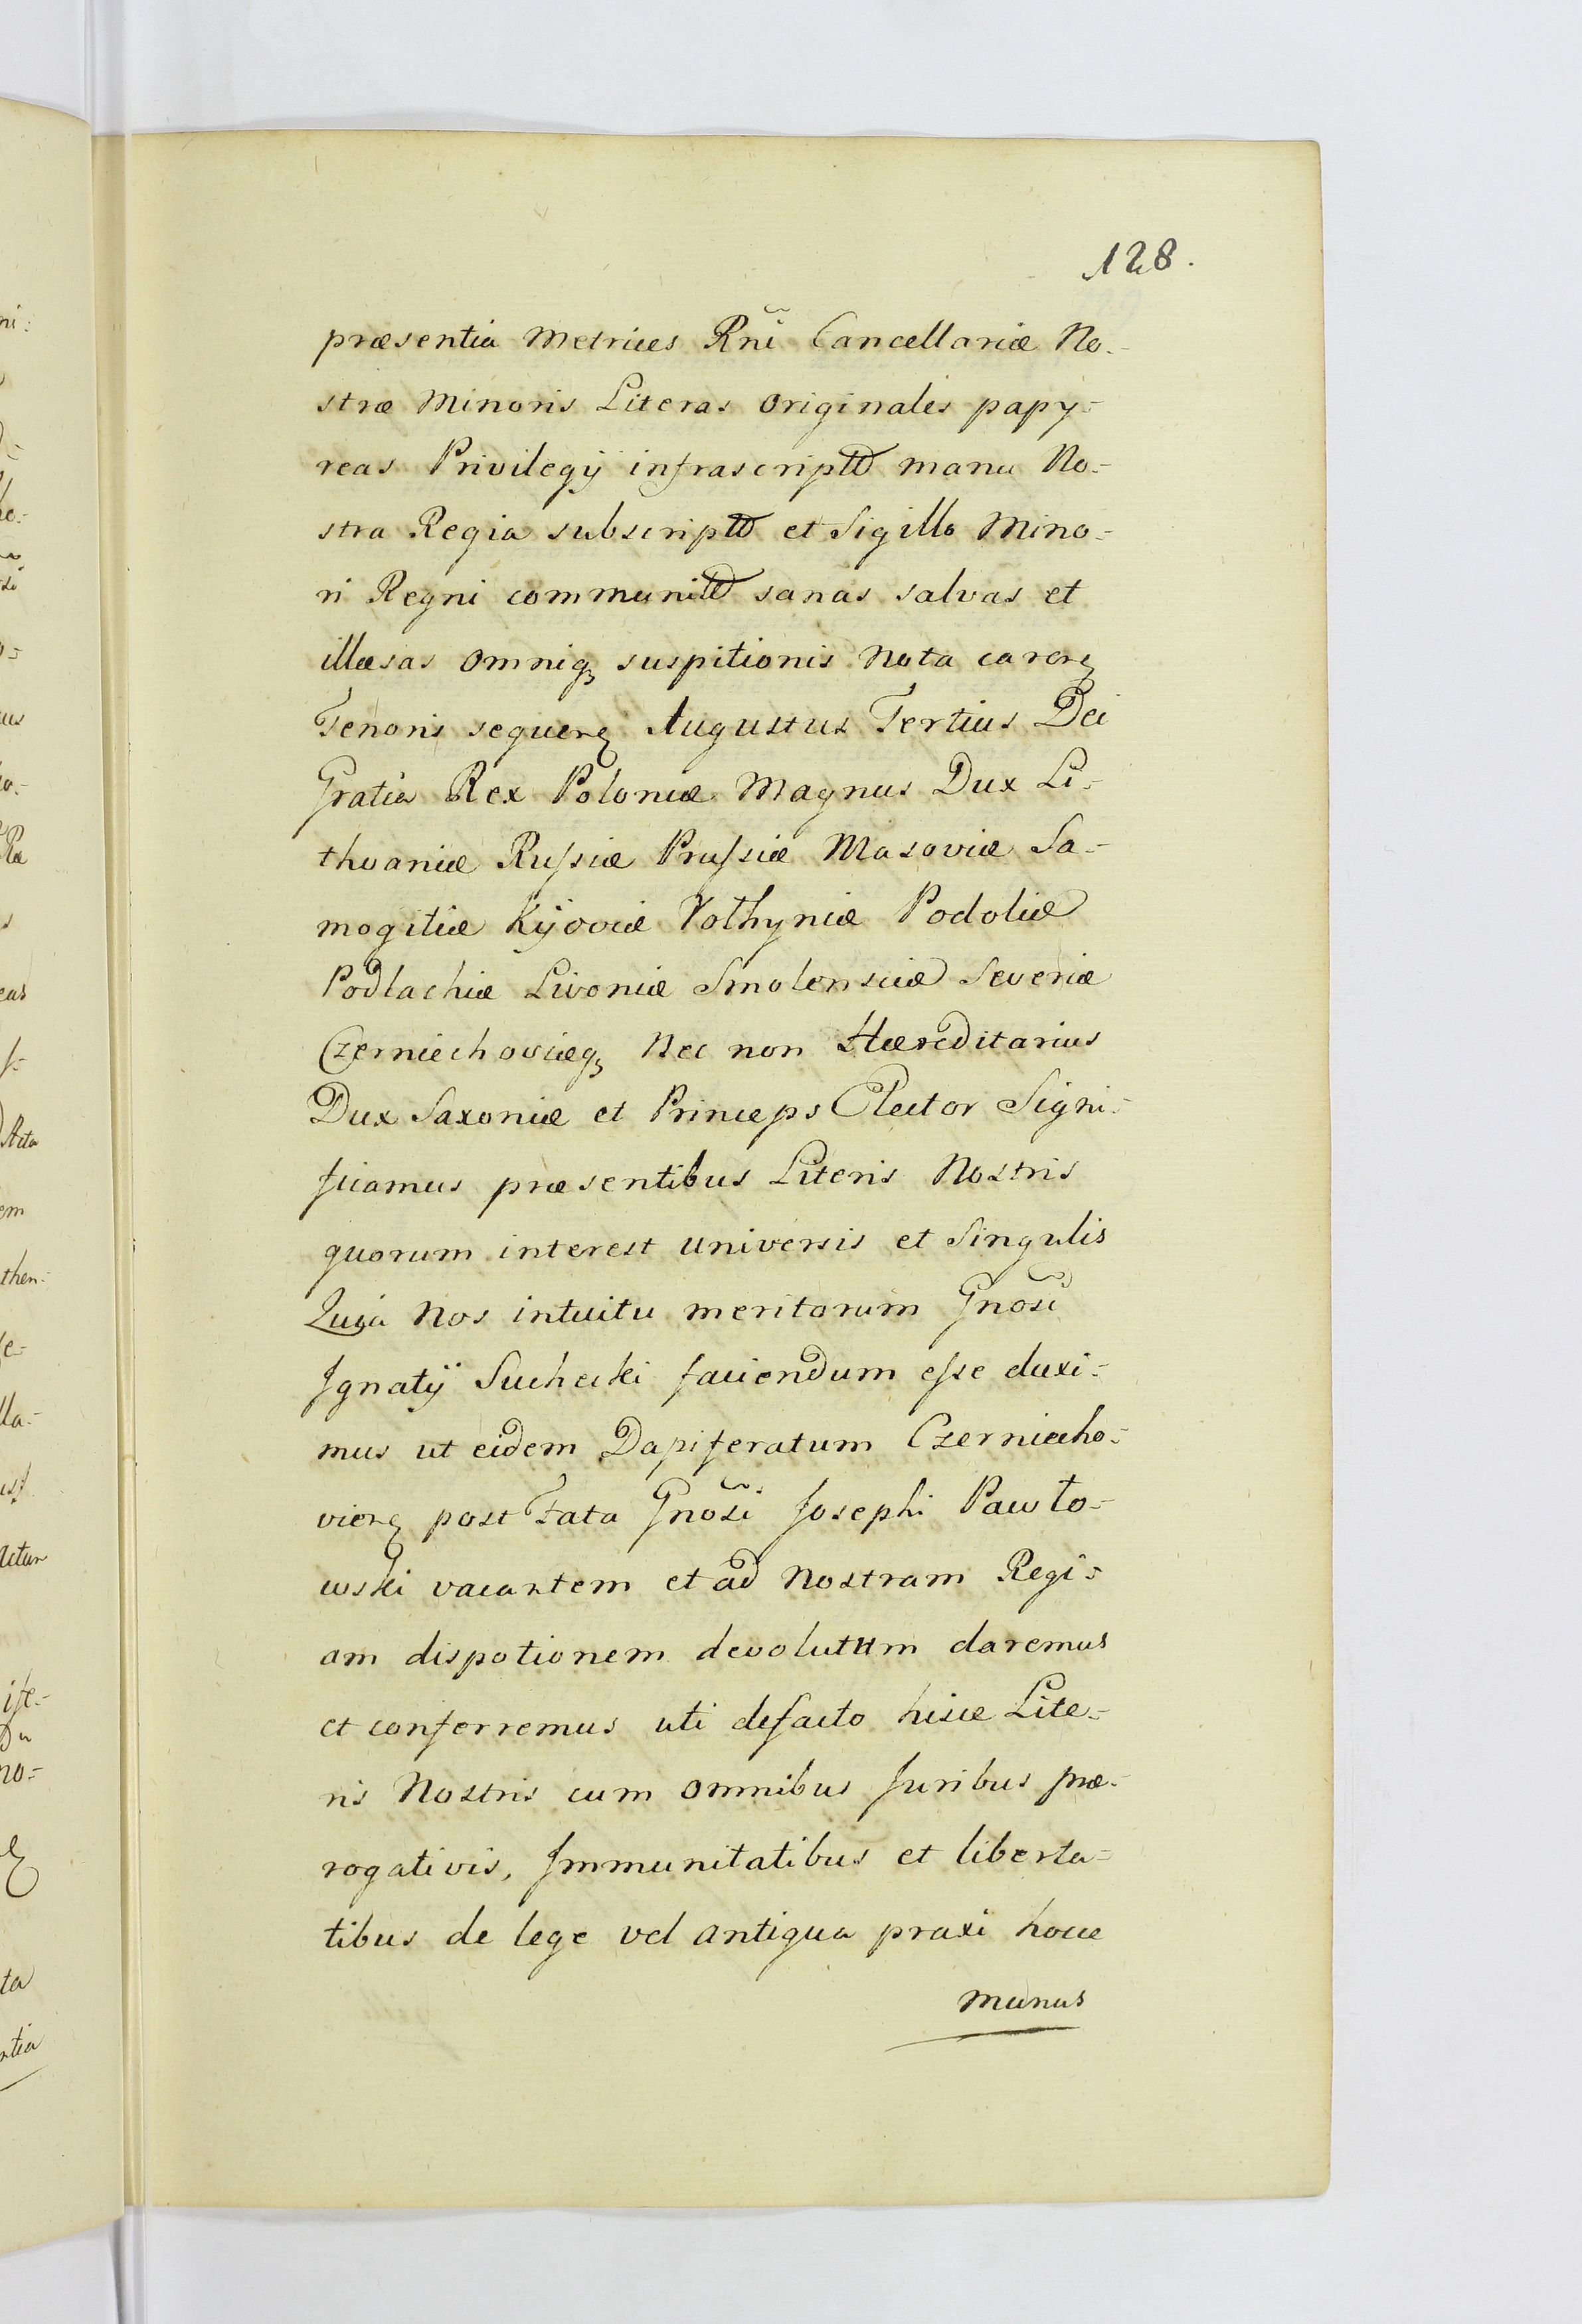 128.
præsentia Metrices Rñi Cancellariæ No-
stræ Minoris Literas Originales papy=
reas Privilegÿ infrascriptꝭ manu No-
stra Regia subscriptꝭ et Sigillo Mino-
ri Regni communitꝭ sanas salvas et
illæsas omniqꝫ suspitionis nota carenꝭ
Tenoris sequenꝭ Augustus Tertius Dei
Gratia Rex Poloniæ Magnus Dux Li-
thvaniæ Russiæ Prussiæ Masoviæ Sa-
mogitiæ Kÿoviæ Volhyniæ Podoliæ
Podlachiæ Livoniæ Smolensciæ Severiæ
Czerniechoviæqꝫ Nec non Hæreditarius
Dux Saxoniæ et Princeps Elector Signi-
ficamus præsentibus Literis Nostris
quorum interest universis et Singulis
Quia Nos intuitu meritorum Gnosi͠
Ignatÿ Suchecki faciendum esse duxi-
mus ut eidem Dapiferatum Czerniecho-
vienꝭ post Fata Gnosi͠ Josephi Pawło-
wski vacantem et ad Nostram Regi=
am dispotionem devolutum daremus
et conferremus uti defacto hisce Lite=
ris Nostris cum omnibus Juribus præ-
rogativis, Immunitatibus et liberta=
tibus de lege vel antiqua praxi hocce
munus